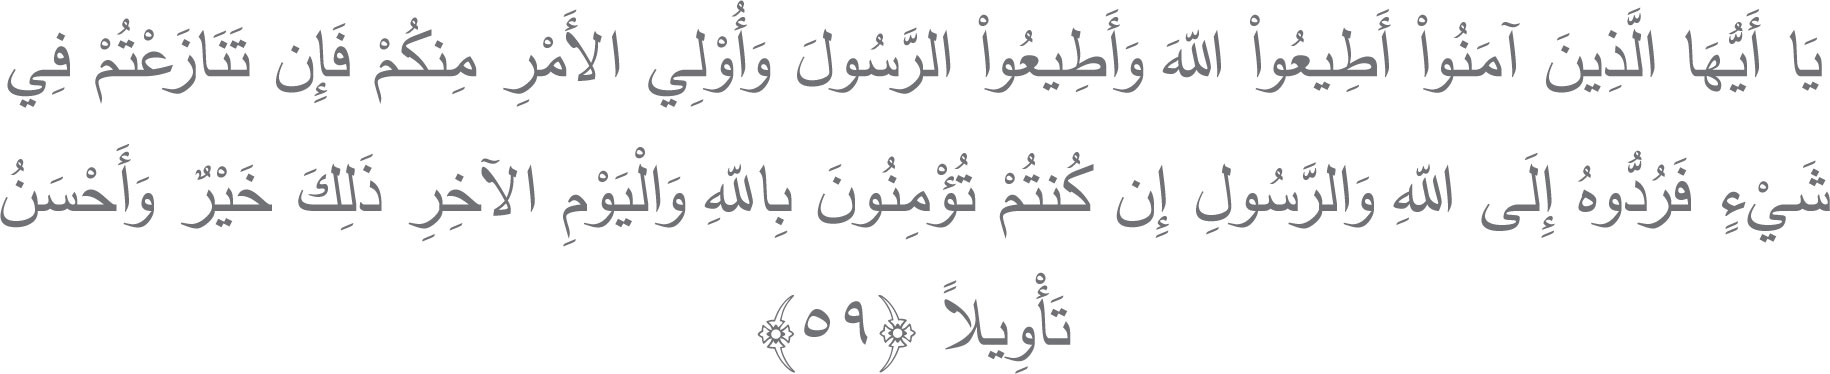 يَا أَيُّهَا الَّذِينَ آمَنُواْ أَطِيعُواْ اللّهَ وَأَطِيعُواْ الرَّسُولَ وَأُوْلِي الأَمْرِ مِنكُمْ فَإِن تَنَازَعْتُمْ فِي
شَيْءٍ فَرُدُّوهُ إِلَى اللّهِ وَالرَّسُولِ إِن كُنتُمْ تُؤْمِنُونَ بِاللّهِ وَالْيَوْمِ الآخِرِ ذَلِكَ خَيْرٌ وَأَحْسَنُ
تَأْوِيلاً ﴿٥٩﴾